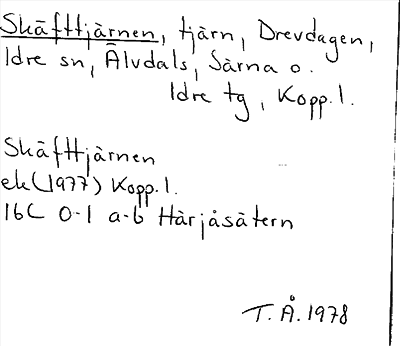 Skäfttjärnen, tjärn, Drevdagen,
Idre sn, Älvdals, Särna o.
Idre tg, Kopp. l.
Skäfttjärnen
ek (1977) Kopp. l.
16C 0-1 a-b Härjåsätern
T. Å. 1978